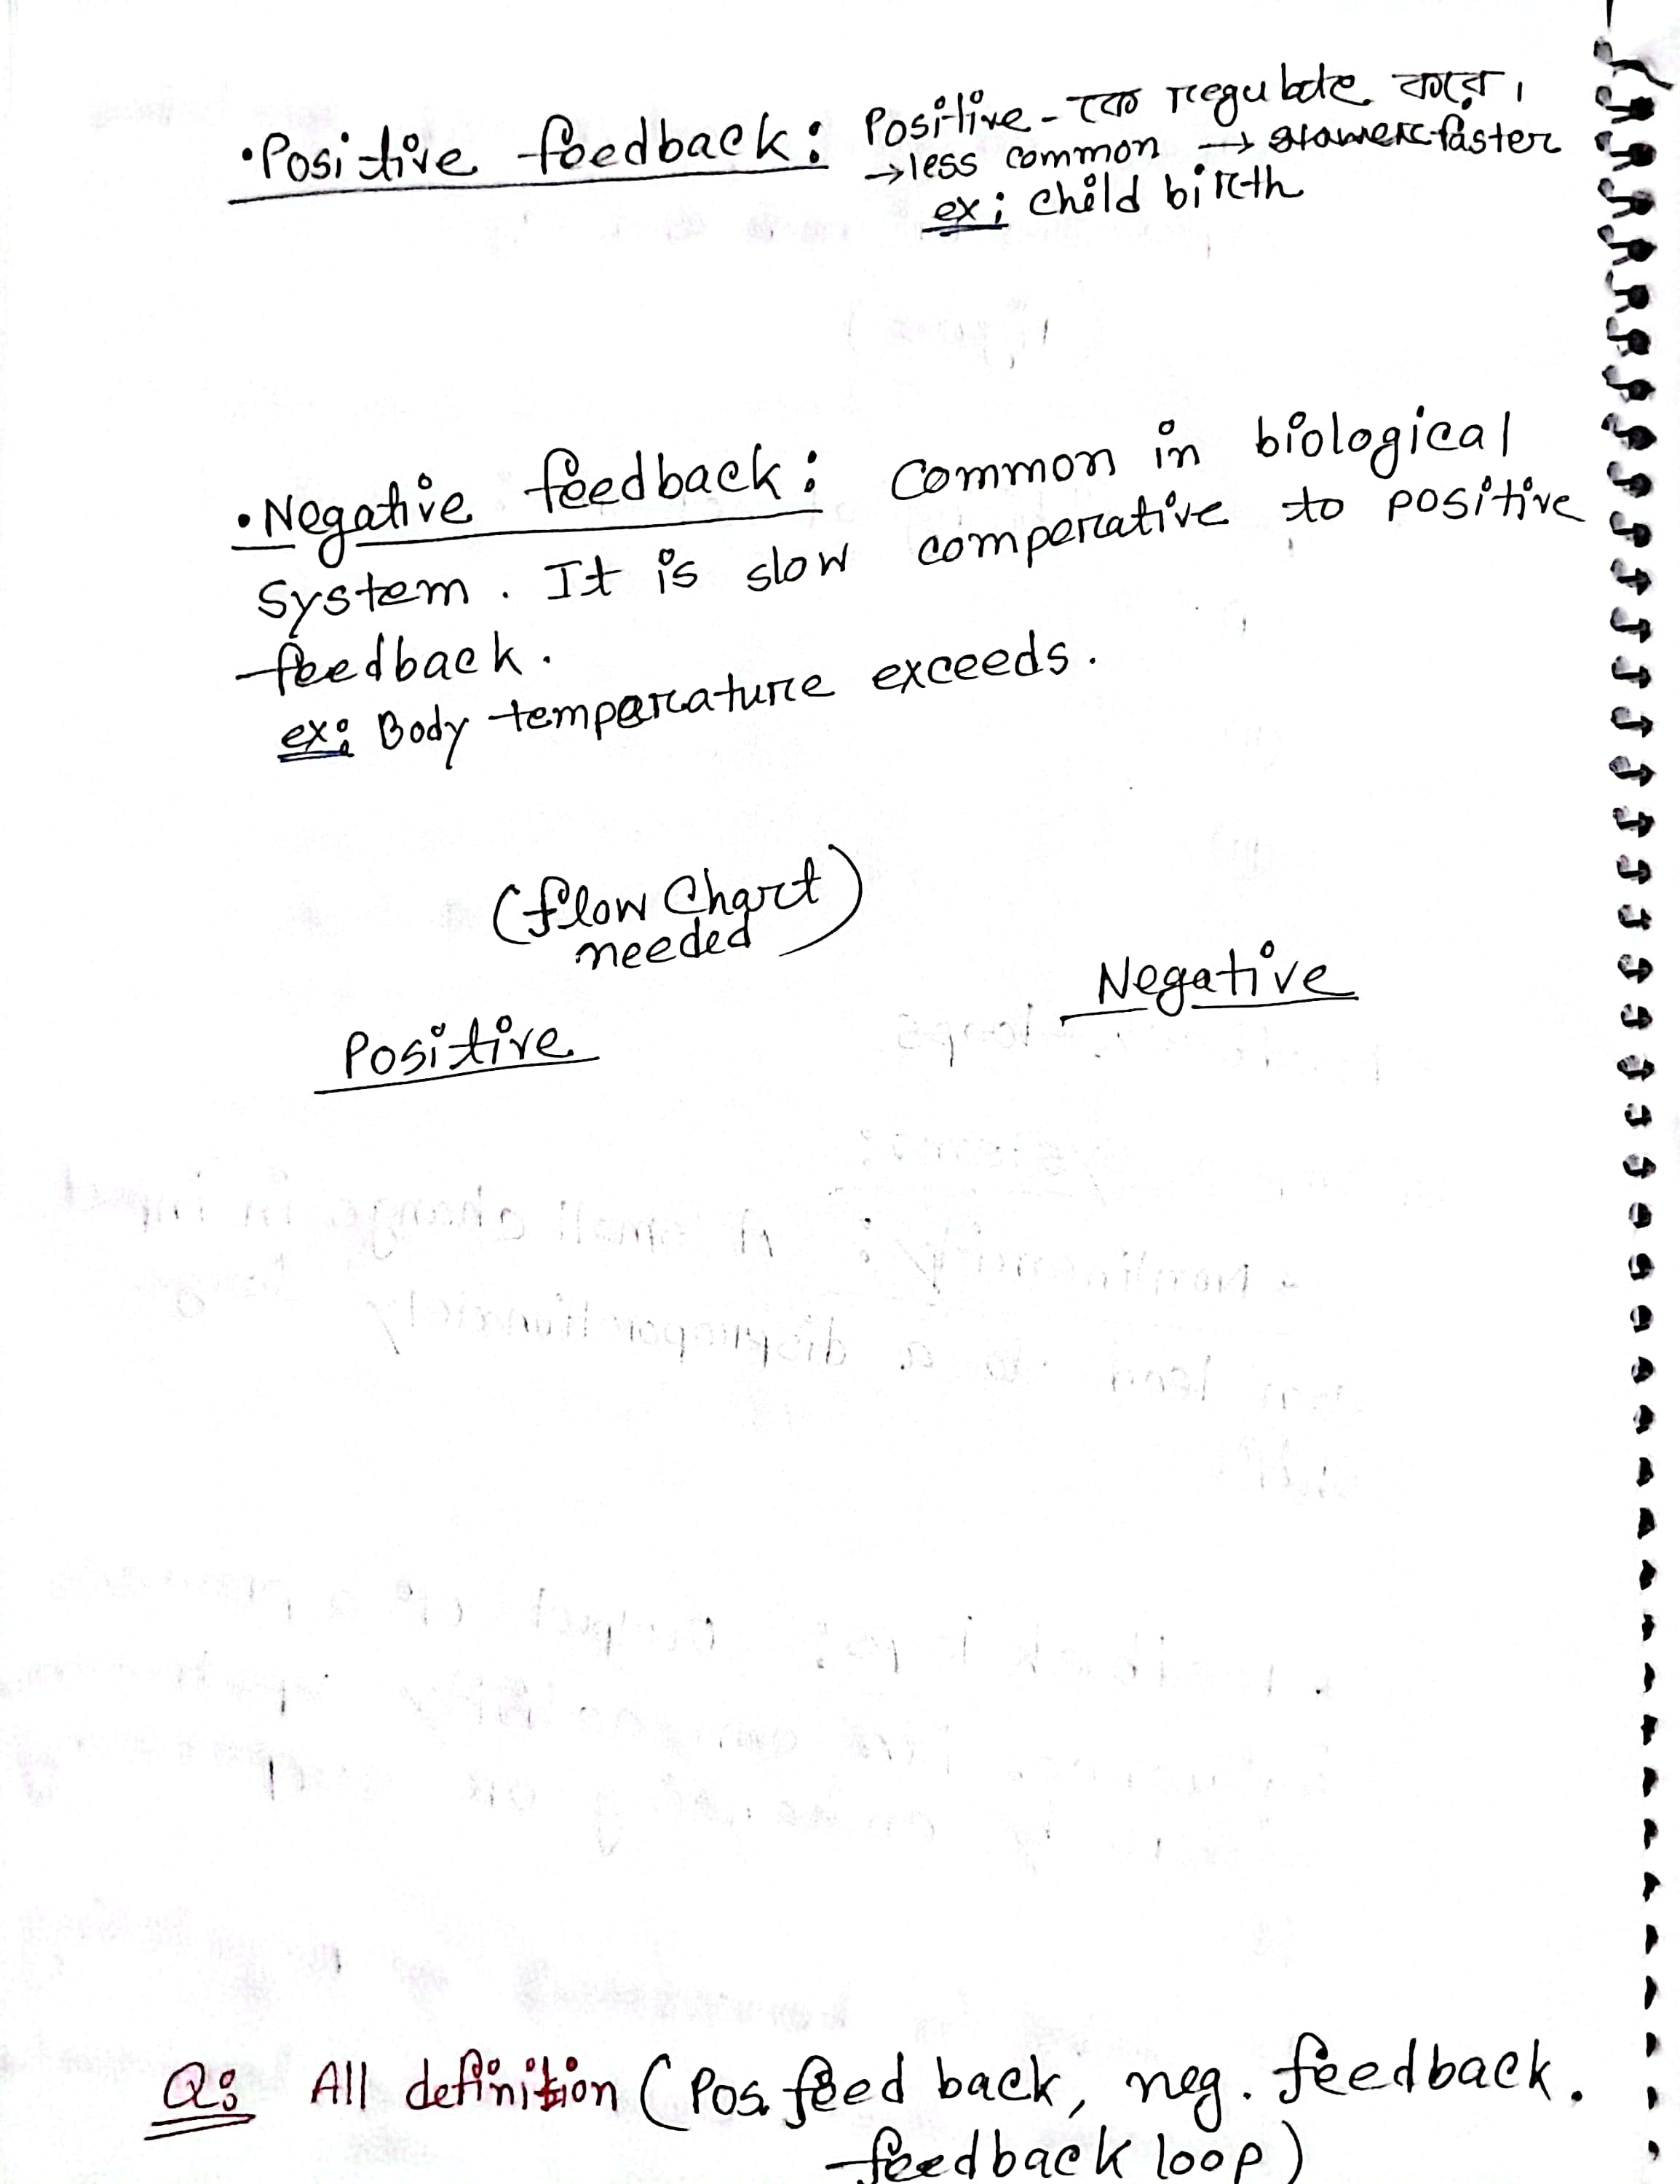 •Positive feedback: Positive-কে regulate করে।
→less common → slower faster
ex: child birth
•Negative feedback: Common in biological
system. It is slow comperative to positive
feedback.
ex: Body temparature exceeds.
(flow Chart
needed)
Negative
Positive
Q: All definition (Pos. feed back, neg. feedback.
feedback loop)